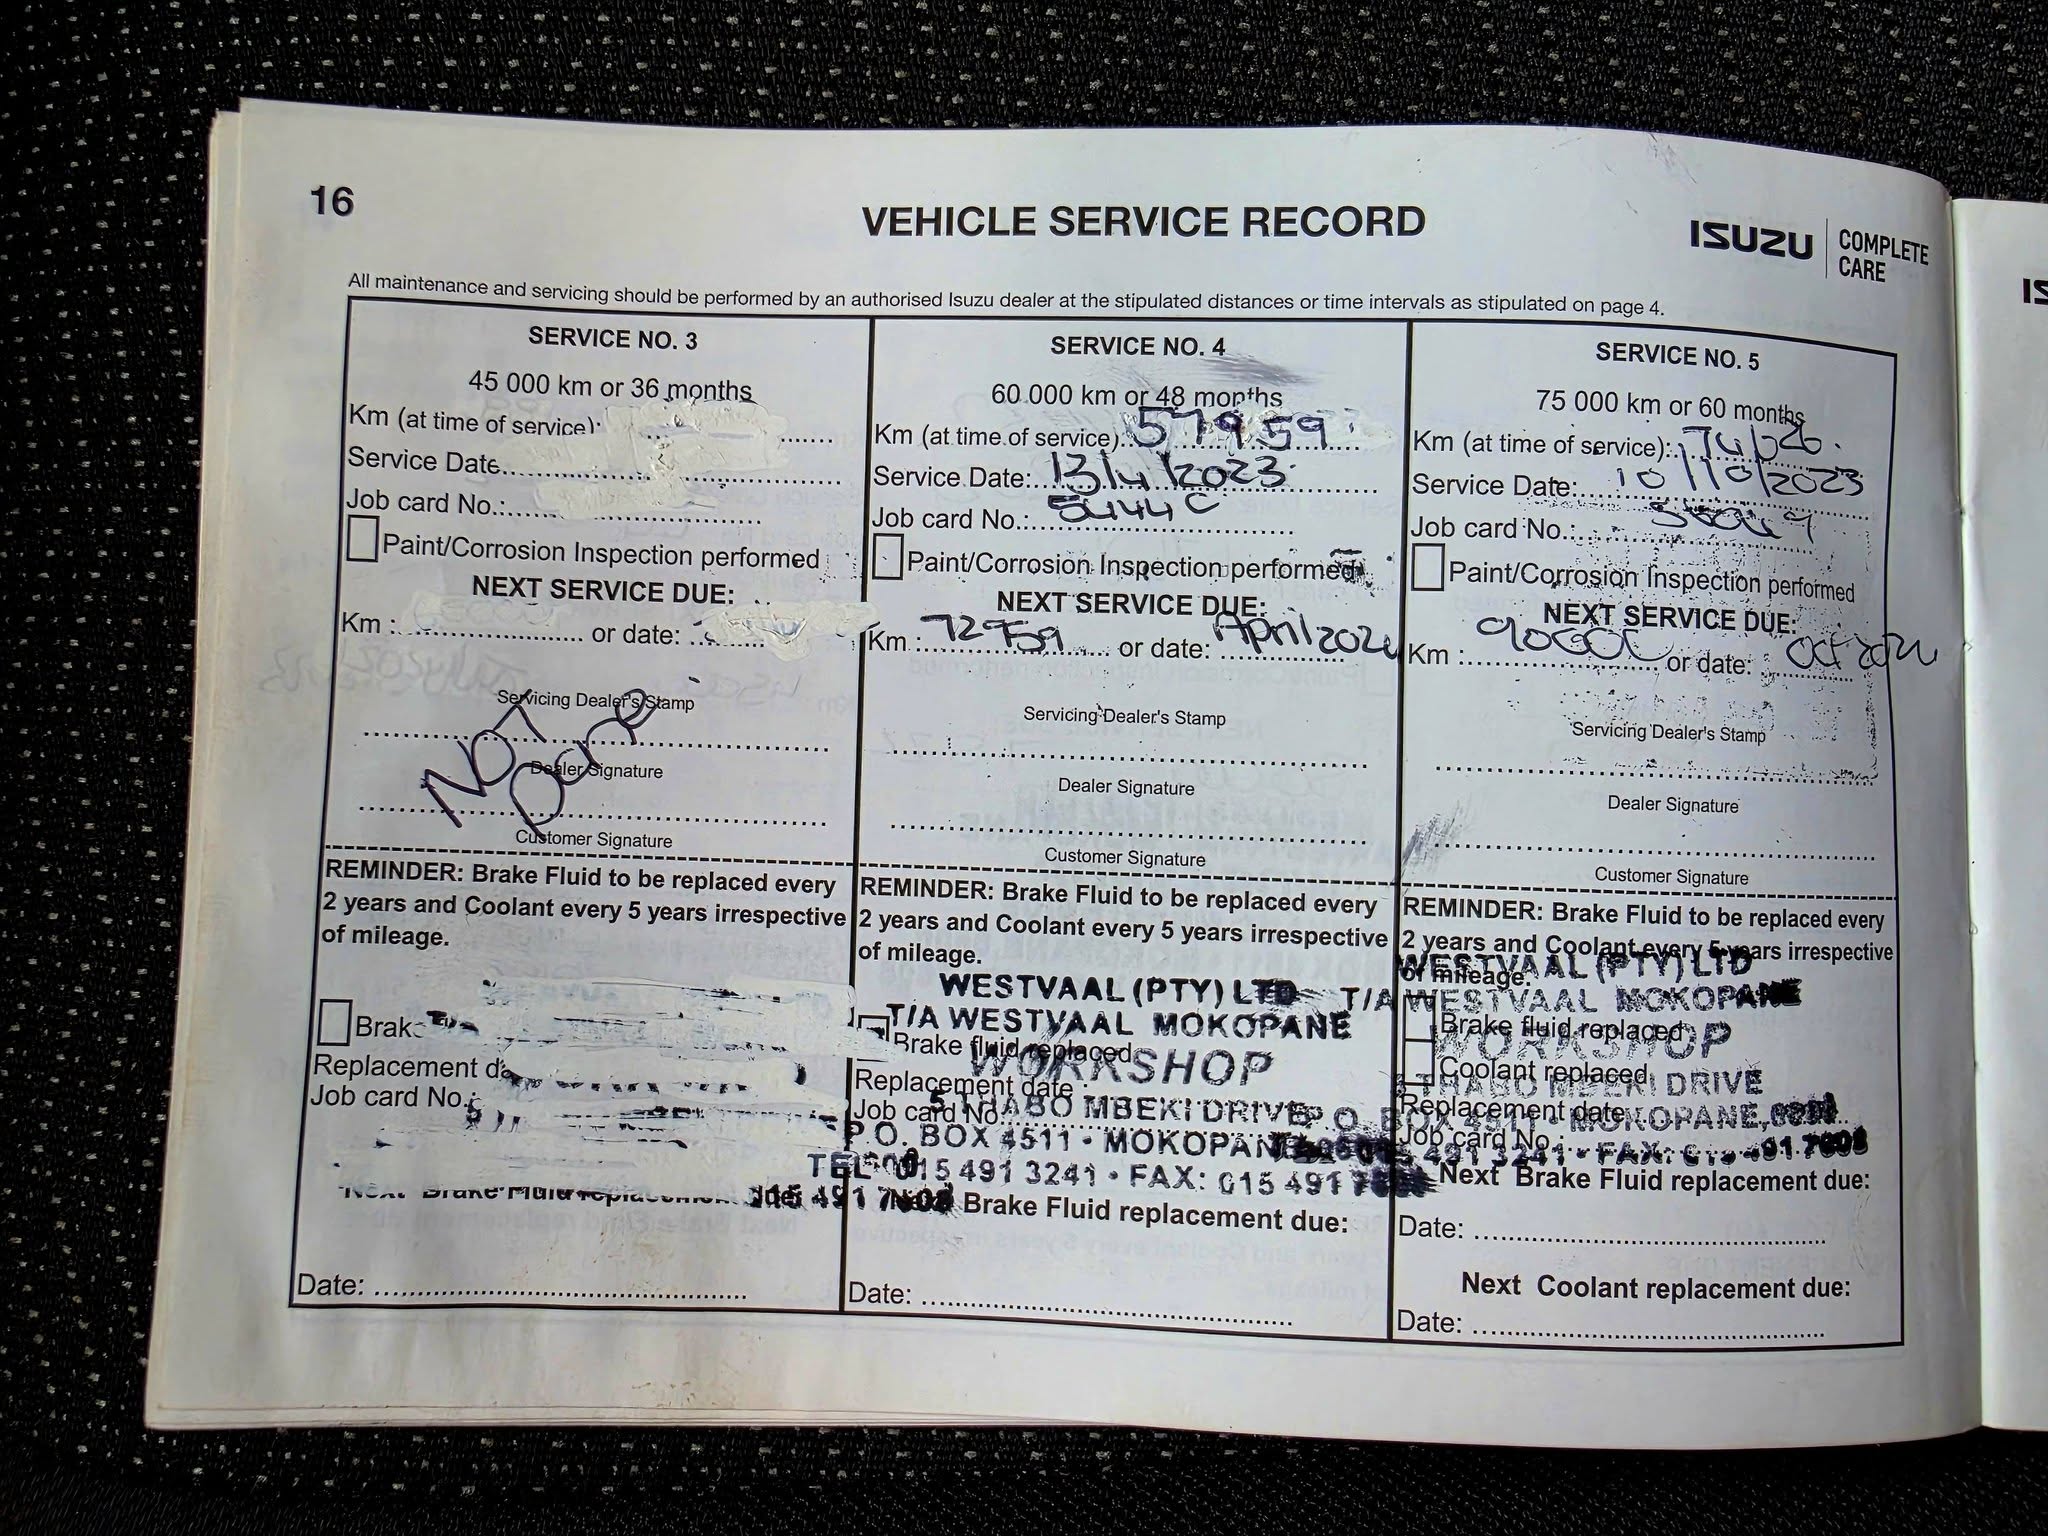 16
VEHICLE SERVICE RECORD
ISUZU COMPLETE
CARE
All maintenance and servicing should be performed by an authorised Isuzu dealer at the stipulated distances or time intervals as stipulated on page 4.
SERVICE NO. 3
45 000 km or 36 months
Km (at time of service):
Service Date
Job card No.:
Paint/Corrosion Inspection performed
NEXT SERVICE DUE:
Km : or date:
Servicing Dealer's Stamp
NOT
Done
Dealer Signature
Customer Signature
REMINDER: Brake Fluid to be replaced every
2 years and Coolant every 5 years irrespective
of mileage.
Replacement
Job card No.:
Next Brake Fluid replacement due:
Date:
SERVICE NO. 4
60 000 km or 48 months
Km (at time of service): 57959
Service Date: 13/4/2023
Job card No.:
Paint/Corrosion Inspection performed
NEXT SERVICE DUE:
Km : 72959 or date: April 2024
Servicing Dealer's Stamp
Dealer Signature
Customer Signature
REMINDER: Brake Fluid to be replaced every
2 years and Coolant every 5 years irrespective
of mileage.
WESTVAAL (PTY) LTD
T/A WESTVAAL MOKOPANE
Brake fluid replaced
WORKSHOP
Replacement date :
5 THABO MBEKI DRIVE
Job card No.
P.O. BOX 4511 • MOKOPANE
TEL: 015 491 3241 • FAX: 015 491
Next Brake Fluid replacement due:
Date:
SERVICE NO. 5
75 000 km or 60 months
Km (at time of service):
Service Date: 10/10/2023
Job card No.:
Paint/Corrosion Inspection performed
NEXT SERVICE DUE:
Km : 90000 or date: Oct 2024
Servicing Dealer's Stamp
Dealer Signature
Customer Signature
REMINDER: Brake Fluid to be replaced every
2 years and Coolant every 5 years irrespective
of mileage.
WESTVAAL (PTY) LTD
T/A WESTVAAL MOKOPANE
Brake fluid replaced
WORKSHOP
Coolant replaced
THABO MBEKI DRIVE
Replacement date
P.O. BOX 4511 • MOKOPANE,
Job card No.:
015 491 3241 • FAX: 015 491 7608
Next Brake Fluid replacement due:
Date:
Next Coolant replacement due:
Date: